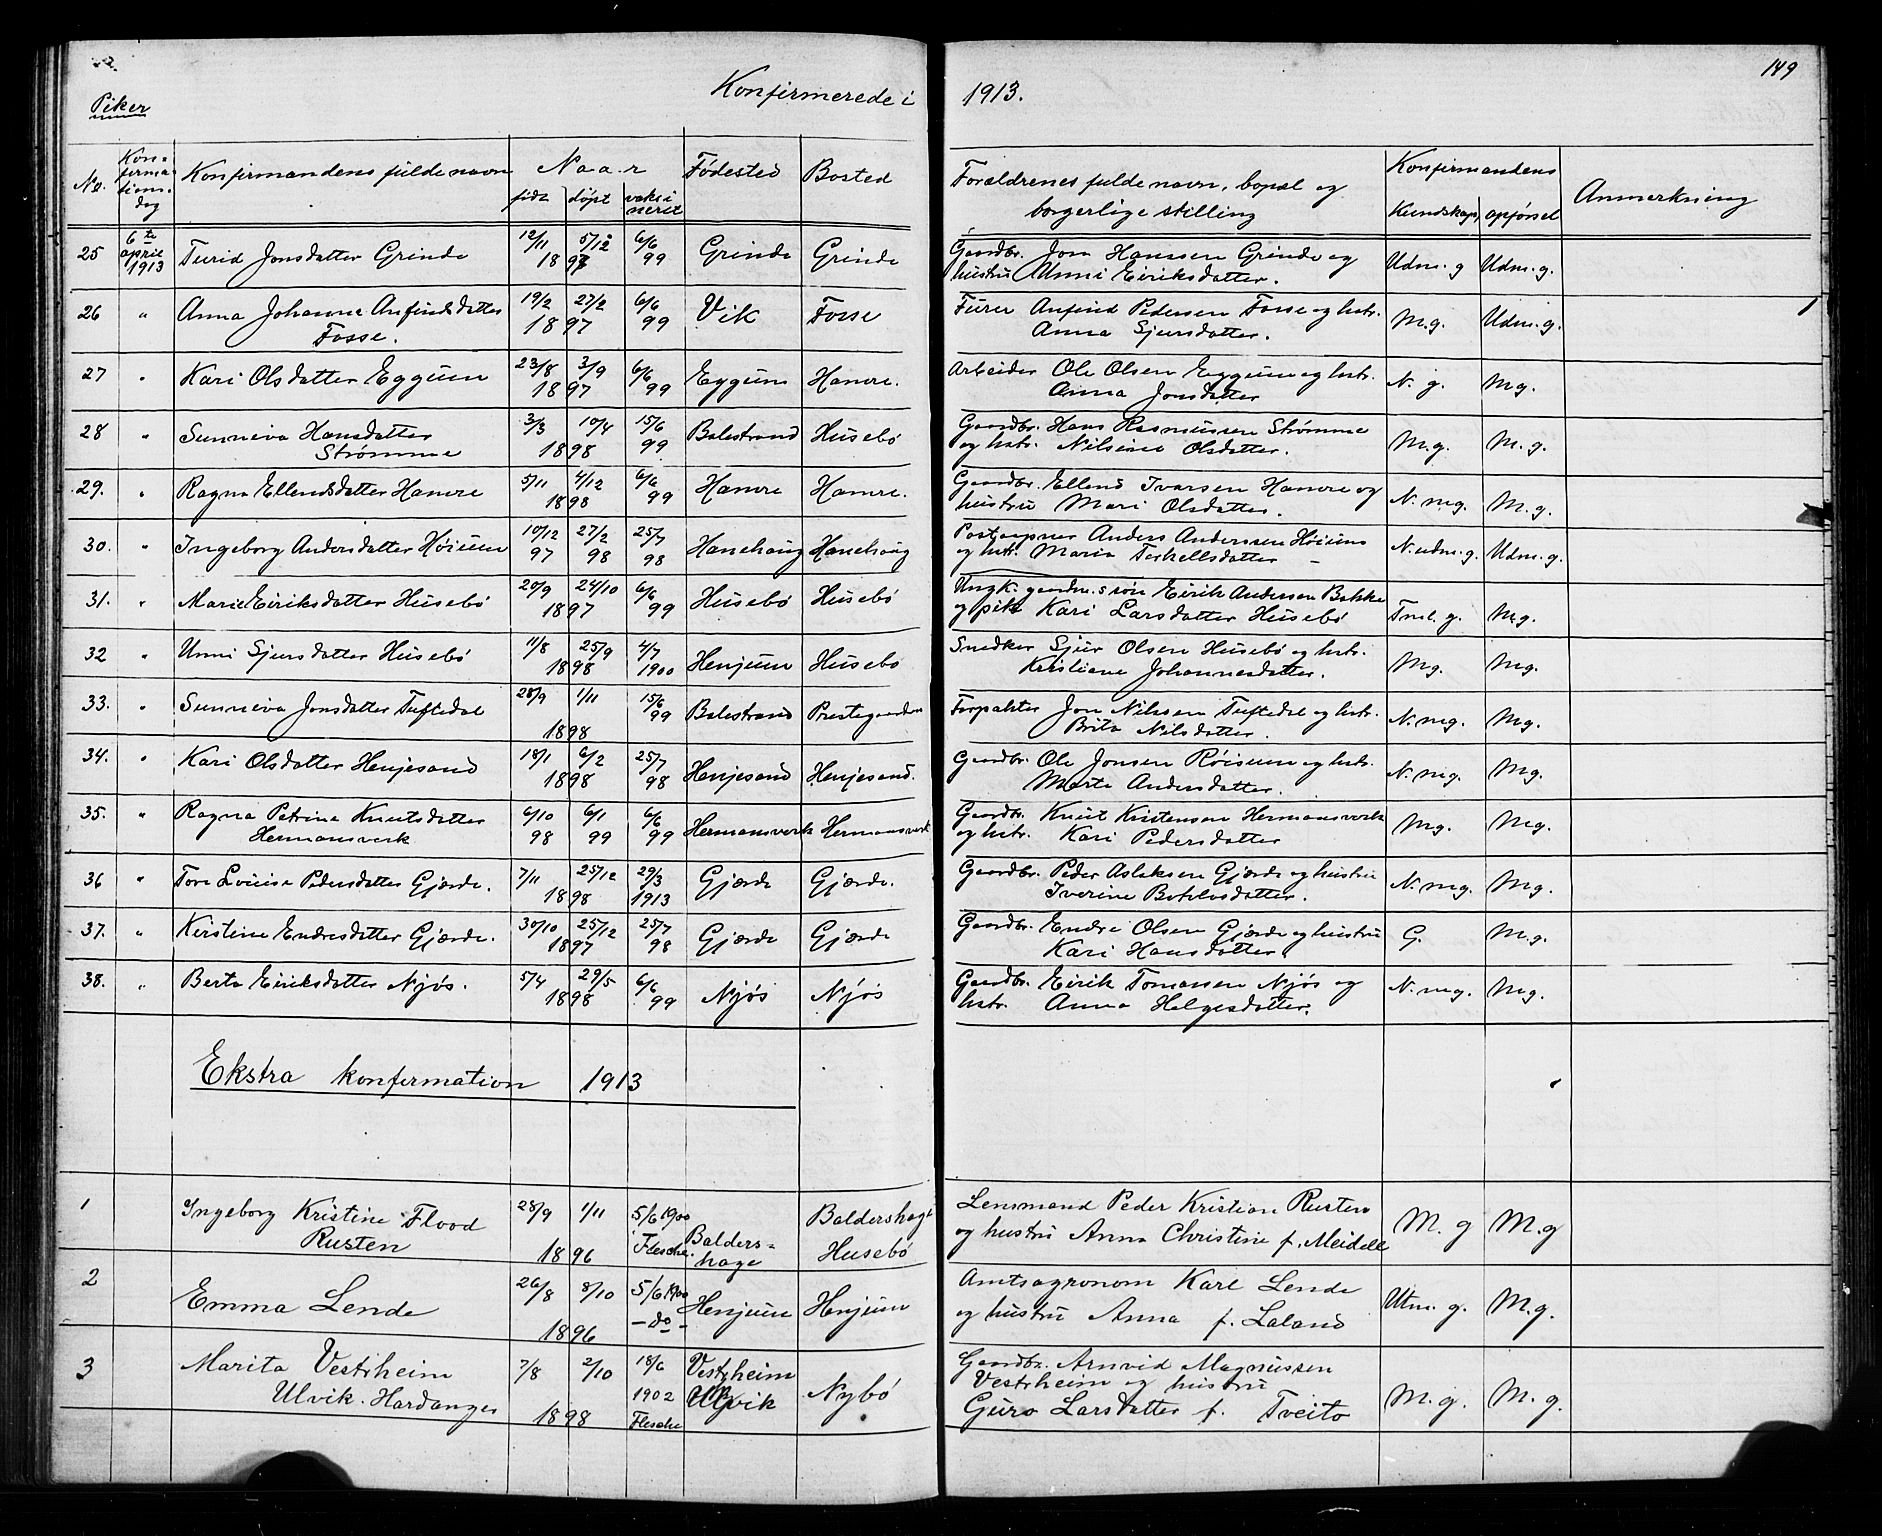 149
Piker
Konfirmerede i 1913.
No. Konfirmationsdag Konfirmandens fulde navn Naar født døpt vaksinerit Fødested Bosted Forældrenes fulde navn, bopæl og borgerlige stilling Konfirmandens Kundskap opførsel Anmerkning
25 6te april 1913 Turid Jonsdatter Grinde 12/11 5/12 1897 6/6 99 Grinde Grinde Gaardbr. Jon Hanssen Grinde og hustru Unni Eiriksdatter. Udm. g Udm. g.
26 " Anna Johanne Anfindsdatter Fosse. 19/2 27/2 1897 6/6 99 Vik Fosse Furer Anfind Pedersen Fosse og hstr. Anna Sjursdatter. M.g. Udm. g.
27 " Kari Olsdatter Eggum 23/8 3/9 1897 6/6 99 Eggum Hamre. Arbeider Ole Olsen Eggum og hstr. Anna Jonsdatter N. g. Mg.
28 " Sunneva Hansdatter Strømme 3/3 10/4 1898 15/6 99 Balestrand Husebø Gaardbr. Hans Rasmussen Strømme og hstr. Nilsine Olsdatter. M.g. M.g.
29. " Ragna Ellendsdatter Hamre 5/11 4/12 1898 6/6 99 Hamre Hamre. Gaardbr. Ellend Ivarsen Hamre og hustru Mari Olsdatter. N. mg. M.g.
30. " Ingeborg Andersdatter Høium 10/12 97 27/2 98 25/7 98 Hanehaug Hanehaug Postaapner Anders Anderssen Høium og hstr. Maria Terkellsdatter N. udm. g. Udm. g.
31. " Marie Eiriksdatter Husebø 20/9 24/10 1897 6/6 99 Husebø Husebø Ungk. gaardm. søn Eirik Andersen Bakke og pike Kari Larsdatter Husebø Tml. g. Mg.
32 " Unni Sjursdatter Husebø 11/8 25/9 1898 4/7 1900 Henjum Husebø Snedker Sjur Olsen Husebø og hstr. Kristiane Johannesdatter. Mg. Mg.
33. " Sunneva Jonsdatter Tuftedal 28/9 1/11 1898 15/6 99 Balestrand Prestegaarden Forpakter Jon Nilssen Tuftedal og hstr. Brita Nilsdatter. N. mg. Mg.
34. " Kari Olsdatter Henjesand 18/1 6/2 1898 25/7 98 Henjesand Henjesand. Gaardbr. Ole Jonsen Røisum og hstr. Marta Andersdatter. N. mg. Mg.
35. " Ragna Petrine Knutsdatter Hermansverk 6/10 98 6/1 99 6/6 99 Hermansverk Hermansverk Gaardbr. Knut Kristensen Hermansverk og hstr. Kari Pedersdatter Mg. Mg.
36 " Tora Lovise Pedersdatter Gjærde. 7/11 25/12 1898 29/3 1913 Gjærde Gjærde. Gaardbr. Peder Aslaksen Gjærde og hustru Iverine Botolvsdatter. N. mg. Mg.
37. " Kirstine Endresdatter Gjærde. 30/10 25/12 1897 25/7 98 Gjærde Gjærde Gaardbr. Endre Olsen Gjærde og hustru Kari Hansdatter G. M.g.
38. " Berta Eiriksdatter Njøs. 5/4 29/5 1898 6/6 99 Njøs Njøs Gaardbr. Eirik Tomassen Njøs og hstr. Anna Helgesdatter. N. mg. Mg.
Ekstra konfirmation 1913
1 Ingeborg Kristine Flood Rusten 28/9 1/11 1896 5/6 1900 Flesche. Baldershage Baldershage Husebø Lensmand Peder Kristian Rusten og hustru Anna Christine f. Meidell M. g M. g
2 Emma Lende 26/8 8/10 1896 5/6 1900 - do - Henjum Henjum Amtsagronom Karl Lende og hustru Anna f. Laland Utm. g. M. g.
3 Marita Vestrheim Ulvik. Hardanger 7/8 2/10 1898 18/6 1902 Flesche Vestrheim Ulvik Nybø Gaardbr. Arnvid Magnussen Vestrheim og hustru Guro Larsdatter f. Tveito M. g. M. g.